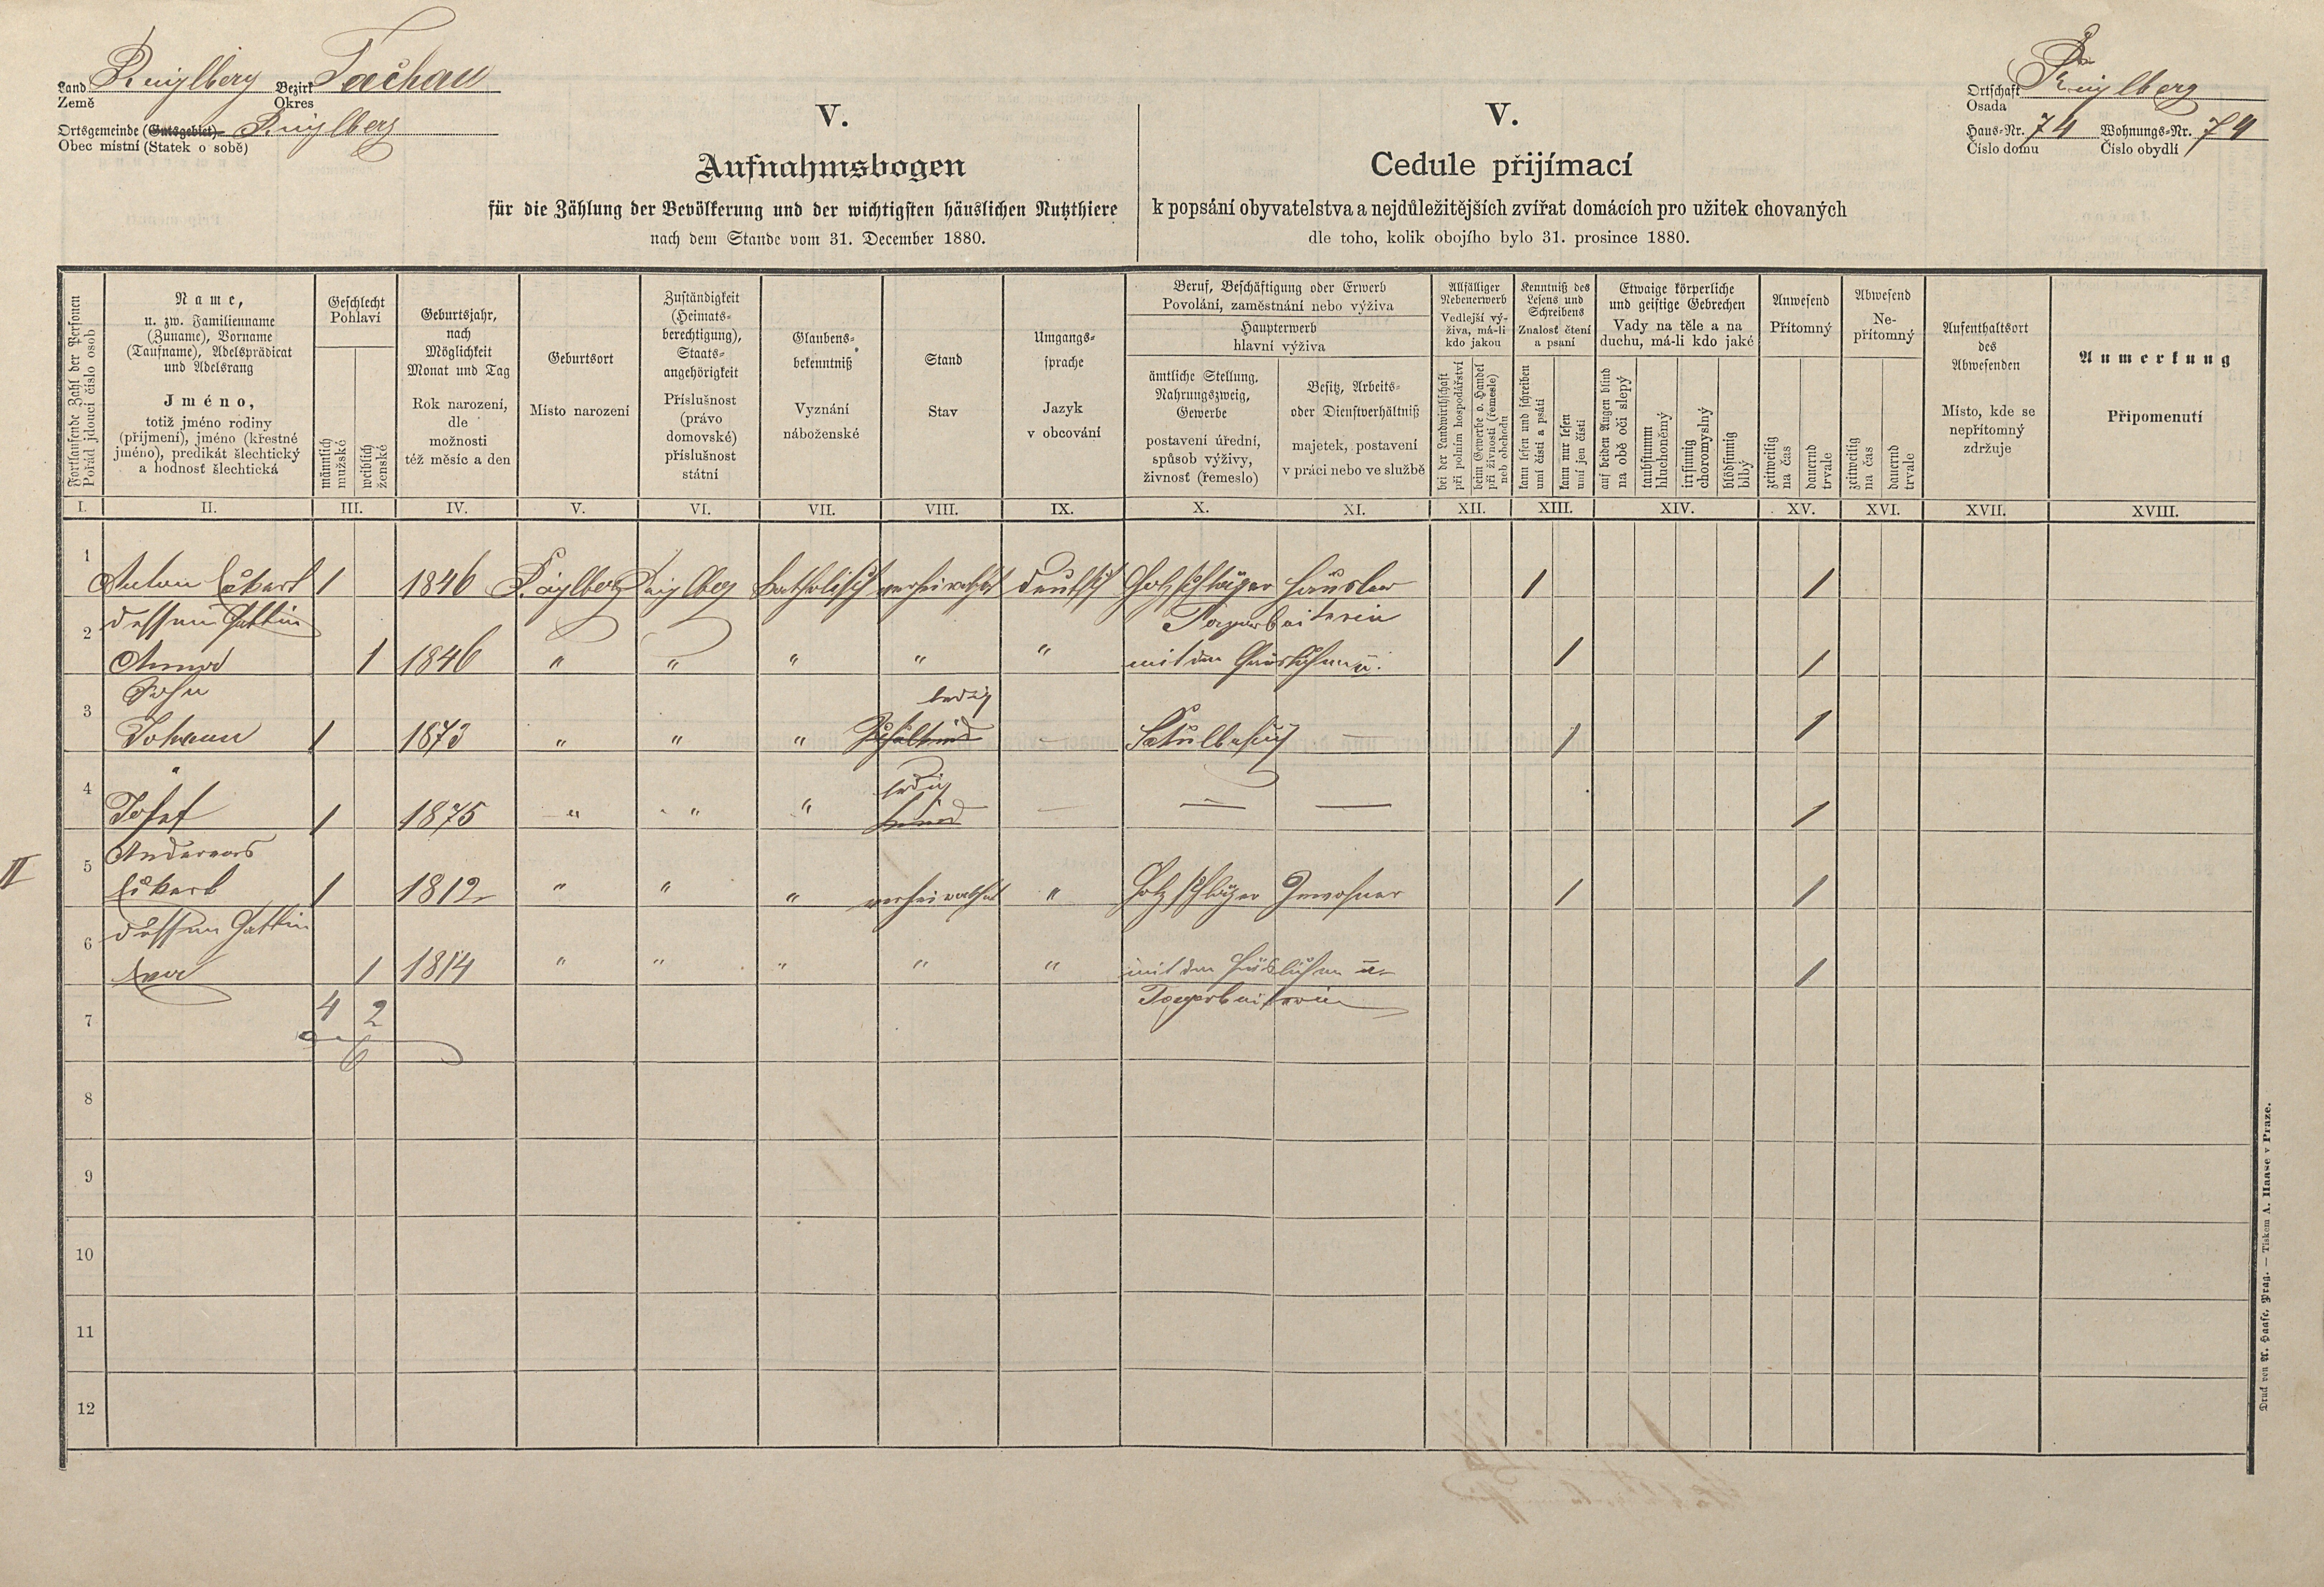 Land Bezirk Tachau
Země Okres
Ortsgemeinde (Gutsgebiet)
Obec místní (Statek o sobě)
Ortschaft
Osada
Haus-Nr. 74 Wohnungs-Nr. 74
Číslo domu Číslo obydlí
V.
Aufnahmsbogen
für die Zählung der Bevölkerung und der wichtigsten häuslichen Nutzthiere
nach dem Stande vom 31. December 1880.
V.
Cedule přijímací
k popsání obyvatelstva a nejdůležitějších zvířat domácích pro užitek chovaných
dle toho, kolik obojího bylo 31. prosince 1880.
Fortlaufende Zahl der Personen
Pořád jdoucí číslo osob
Name,
u. zw. Familienname
(Zuname), Vorname
(Taufname), Adelsprädicat
und Adelsrang
Jméno,
totiž jméno rodiny
(příjmení), jméno (křestné
jméno), predikát šlechtický
a hodnosť šlechtická
Geschlecht
Pohlaví
männlich
mužské
weiblich
ženské
Geburtsjahr,
nach
Möglichkeit
Monat und Tag
Rok narození,
dle
možnosti
též měsíc a den
Geburtsort
Místo narození
Zuständigkeit
(Heimats-
berechtigung),
Staats-
angehörigkeit
Příslušnost
(právo
domovské)
příslušnost
státní
Glaubens-
bekenntniß
Vyznání
náboženské
Stand
Stav
Umgangs-
sprache
Jazyk
v obcování
Beruf, Beschäftigung oder Erwerb
Povolání, zaměstnání nebo výživa
Haupterwerb
hlavní výživa
ämtliche Stellung,
Nahrungszweig,
Gewerbe
postavení úřední,
způsob výživy,
živnosť (řemeslo)
Besitz, Arbeits-
oder Dienstverhältniß
majetek, postavení
v práci nebo ve službě
Allfälliger
Nebenerwerb
Vedlejší vý-
živa, má-li
kdo jakou
bei der Landwirthschaft
při polním hospodářství
beim Gewerbe o. Handel
při živnosti (řemesle)
neb obchodu
Kenntniß des
Lesens und
Schreibens
Znalosť čtení
a psaní
kann lesen und schreiben
umí čísti a psáti
kann nur lesen
umí jen čísti
Etwaige körperliche
und geistige Gebrechen
Vady na těle a na
duchu, má-li kdo jaké
auf beiden Augen blind
na obě oči slepý
taubstumm
hluchoněmý
irrsinnig
choromyslný
blödsinnig
blbý
Anwesend
Přítomný
zeitweilig
na čas
dauernd
trvale
Abwesend
Ne-
přítomný
zeitweilig
na čas
dauernd
trvale
Aufenthaltsort
des
Abwesenden
Místo, kde se
nepřítomný
zdržuje
Anmerkung
Připomenutí
I. II. III. IV. V. VI. VII. VIII. IX. X. XI. XII. XIII. XIV. XV. XVI. XVII. XVIII.
1 Anton Eckert 1 1846 katholisch verheirathet deutsch Holzschläger Häusler 1 1
dessen Gattin Tagarbeiterin
2 Anna 1 1846 " " " " " mit den Häuslichen u. 1 1
Sohn ledig
3 Johann 1 1873 " " " – Schulbesuch – 1 1
" ledig
4 Josef 1 1875 " " " Kind – — — 1
II
Andereas
5 Eckert 1 1812 " " " verheirathet " Holzschläger Inwohner 1 1
dessen Gattin
6 Eva 1 1814 " " " " " mit den Häuslichen u. 1
7 4 2 Tagarbeiterin
6
8
9
10
11
12
Druck von A. Haase, Prag. — Tiskem A. Haase v Praze.